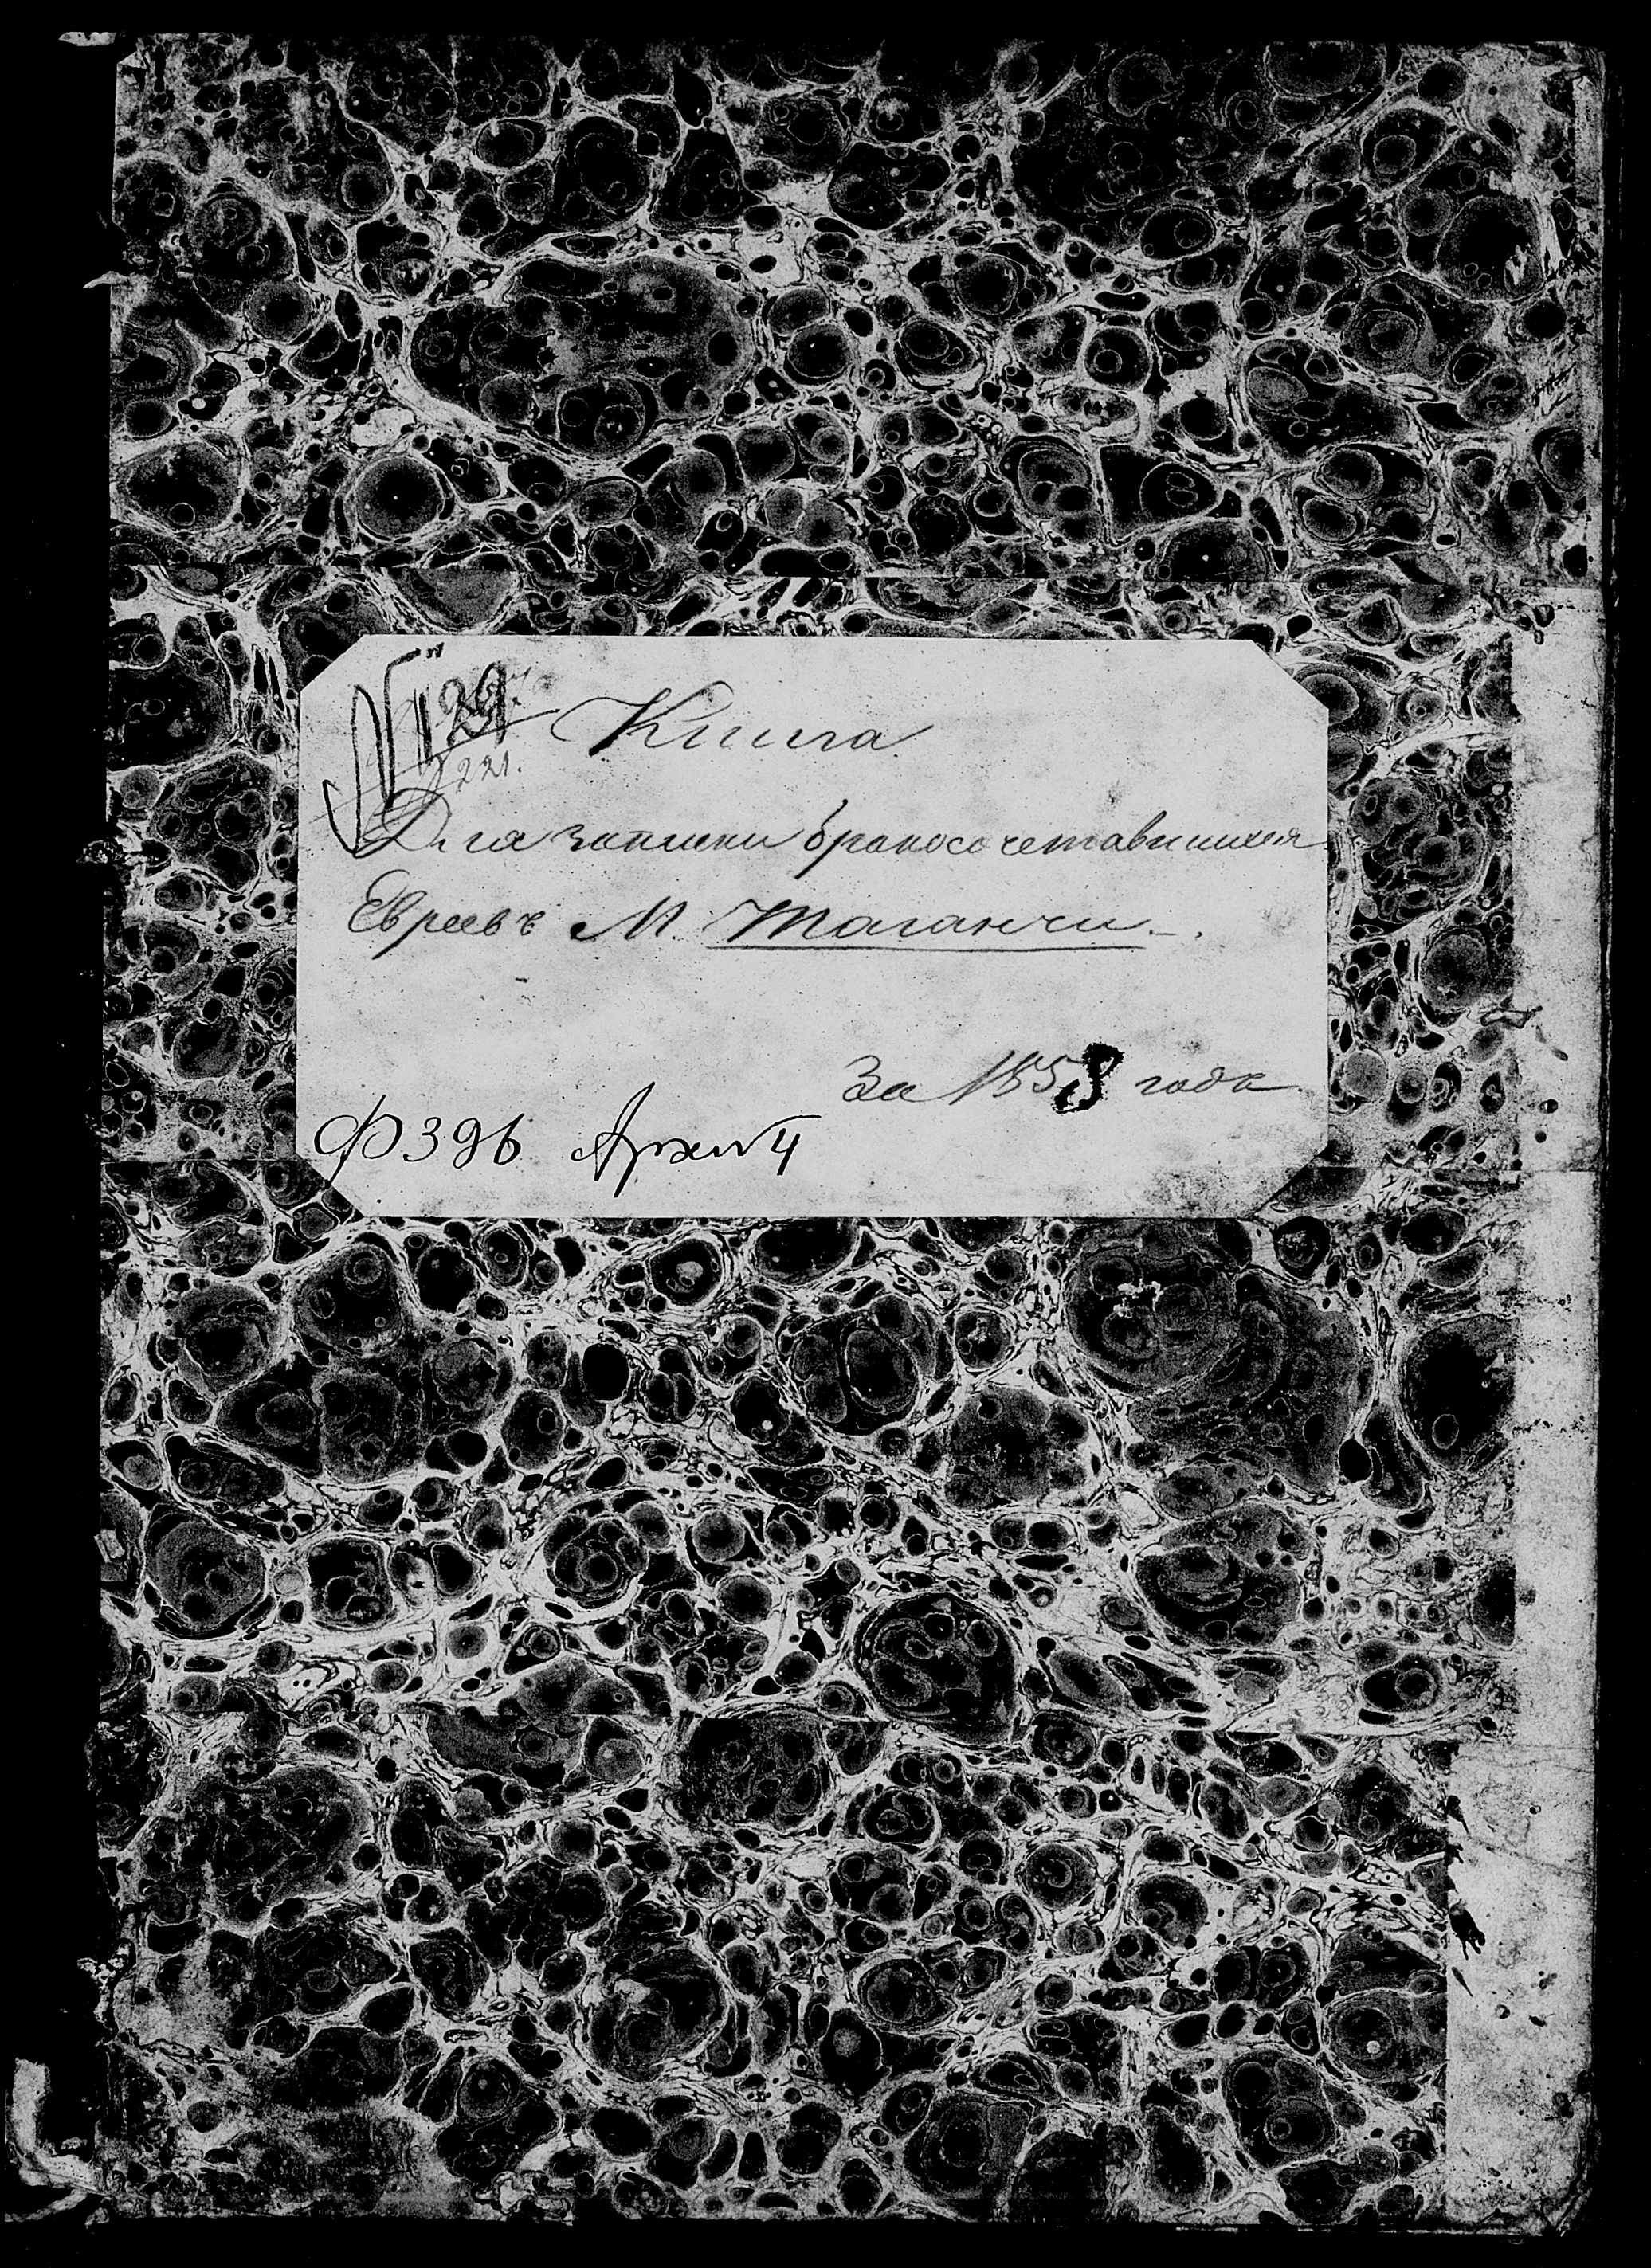 № 129
221.
Книга
Для записки бракосочетавшихся
Евреевъ М. Таганчи.
За 1858 годъ
Ф 396